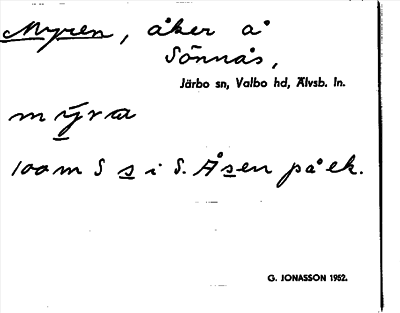 Myren, åker å
Sönnås,
Järbo sn, Valbo hd, Älvsb. ln.
mýra
100 m S s i S. Åsen på ek.
G. JONASSON 1952.